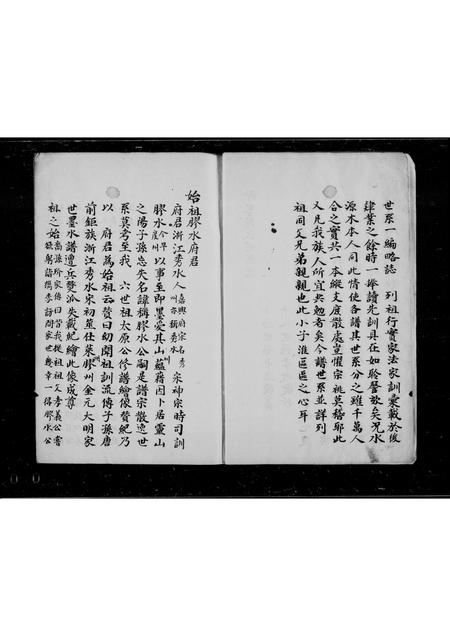 世系一編略誌　列祖行實家法家訓彙載於後
肄業之餘時一舉讀先訓具在如聆謦欬矣況水
源木本人同此情使各譜其世系分之雖千萬人
合之實共一本縱支庶散處皇懼宗祧莫稽耶此
又凡我族人所宜共勉者矣今譜世系並詳列
祖同父兄弟親親也此小子淮區區之心耳
始祖膠水府君
府君浙江秀水人嘉興府宋名秀州亦稱秀水宋神宗時司訓
膠水今平度州以事至即墨愛其山蘊藉因卜居靈山
之陽子孫忘失名諱稱膠水公嗣是譜宗散逸世
系莫考至我　六世祖太原公修譜繪像贊紀乃
以　府君為始祖云贊曰幼聞祖訓流傳子孫唐
前鉅族浙江秀水宋初筮仕萊膠州金元大明家
世墨水譜遭兵燹泒失載紀繪此像成尊
祖之始